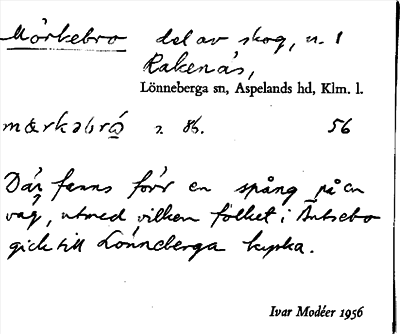 Mörkebro del av skog, n. 1
Rakenäs,
Lönneberga sn, Aspelands hd, Klm. l.
mœrkabrō 2. 86. 56
Där fanns förr en spång på en
väg, utmed vilken folket i Äntsebo
gick till Lönneberga kyrka.
Ivar Modéer 1956